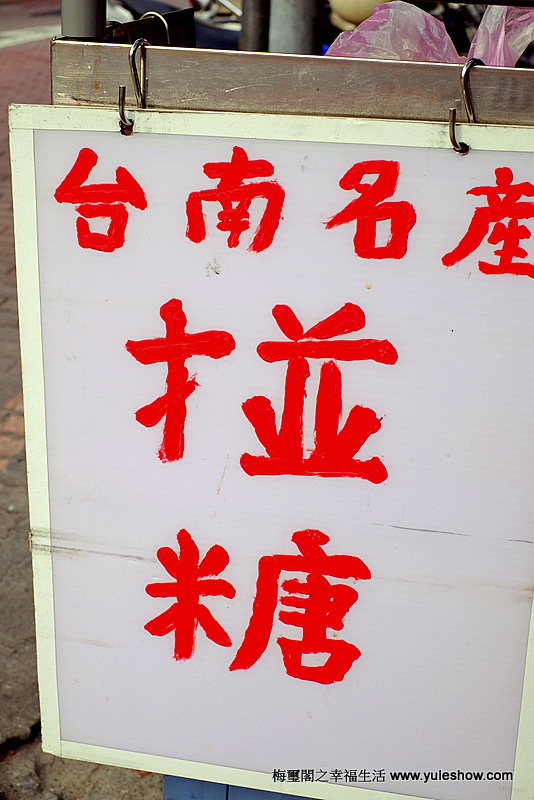 台南名產
掽
糖
梅璽閣之幸福生活 www.yuleshow.com